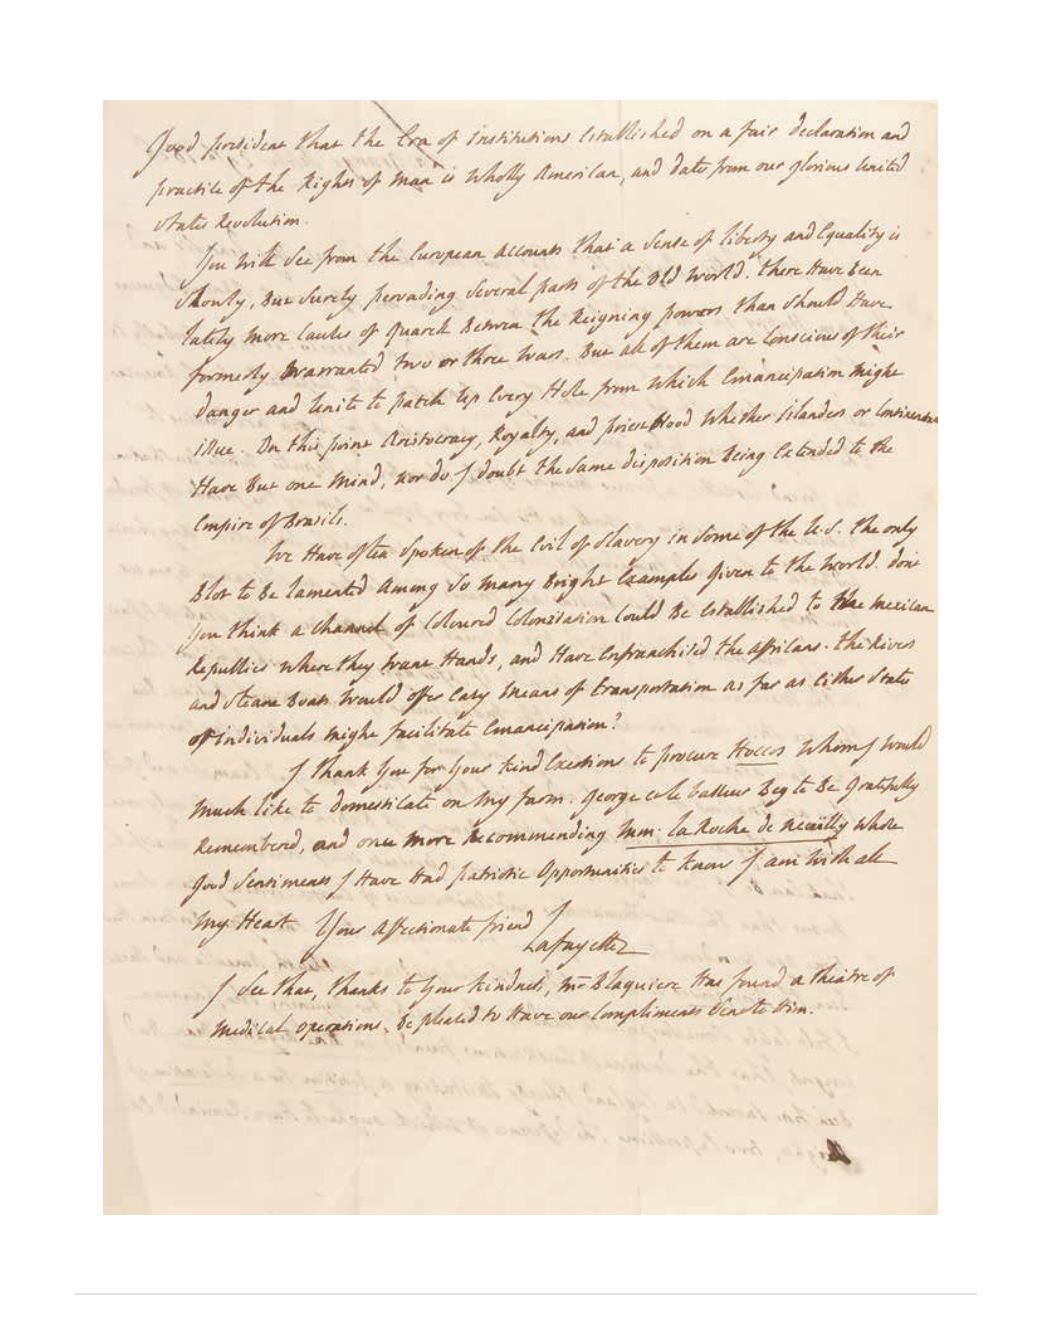 good president that the Era of Institutions Established on a fair declaration and
practice of the Rights of Man is wholly American, and dates from our glorious United
states Revolution.
You will See from the European accounts that a Sense of liberty and Equality is
slowly, But Surely pervading Several parts of the Old World. there Have Been
lately more causes of quarel Betwen the Reigning powers than Should Have
formerly warranted two or three wars. But all of them are Conscious of their
danger and Unite to patch Up Every Hole from which Emancipation might
issue. On this point Aristocracy, Royalty, and priest Hood whether islanders or Continental
Have But one mind, nor do I doubt the Same disposition Being Extended to the
Empire of Brasils.
We Have often Spoken of the Evil of Slavery in Some of the U.S. the only
Blot to Be lamented Among So many Bright Examples Given to the World. don't
You think a channel of Coloured Colonisation Could Be Established to the Mexican
Republics where they want Hands, and Have Enfranchised the Affricans. the Rivers
and Steam Boats Would offer Easy means of transportation as far as Either State
or individuals might facilitate Emancipation?
I thank You for Your Kind Exertions to procure Hoccos whom I would
much like to domesticate on my farm. George Beg to Be Gratefully
Remembered, and once more Recommending la Roche de whose
good Sentiments I Have Had patriotic Opportunities to know I am with all
My Heart Your Affectionate friend
Lafayette
I See that, thanks to Your Kindness, Mr Blaquiere Has found a theatre of
Medical operations. be pleased to Have our Compliments Sent to Him.